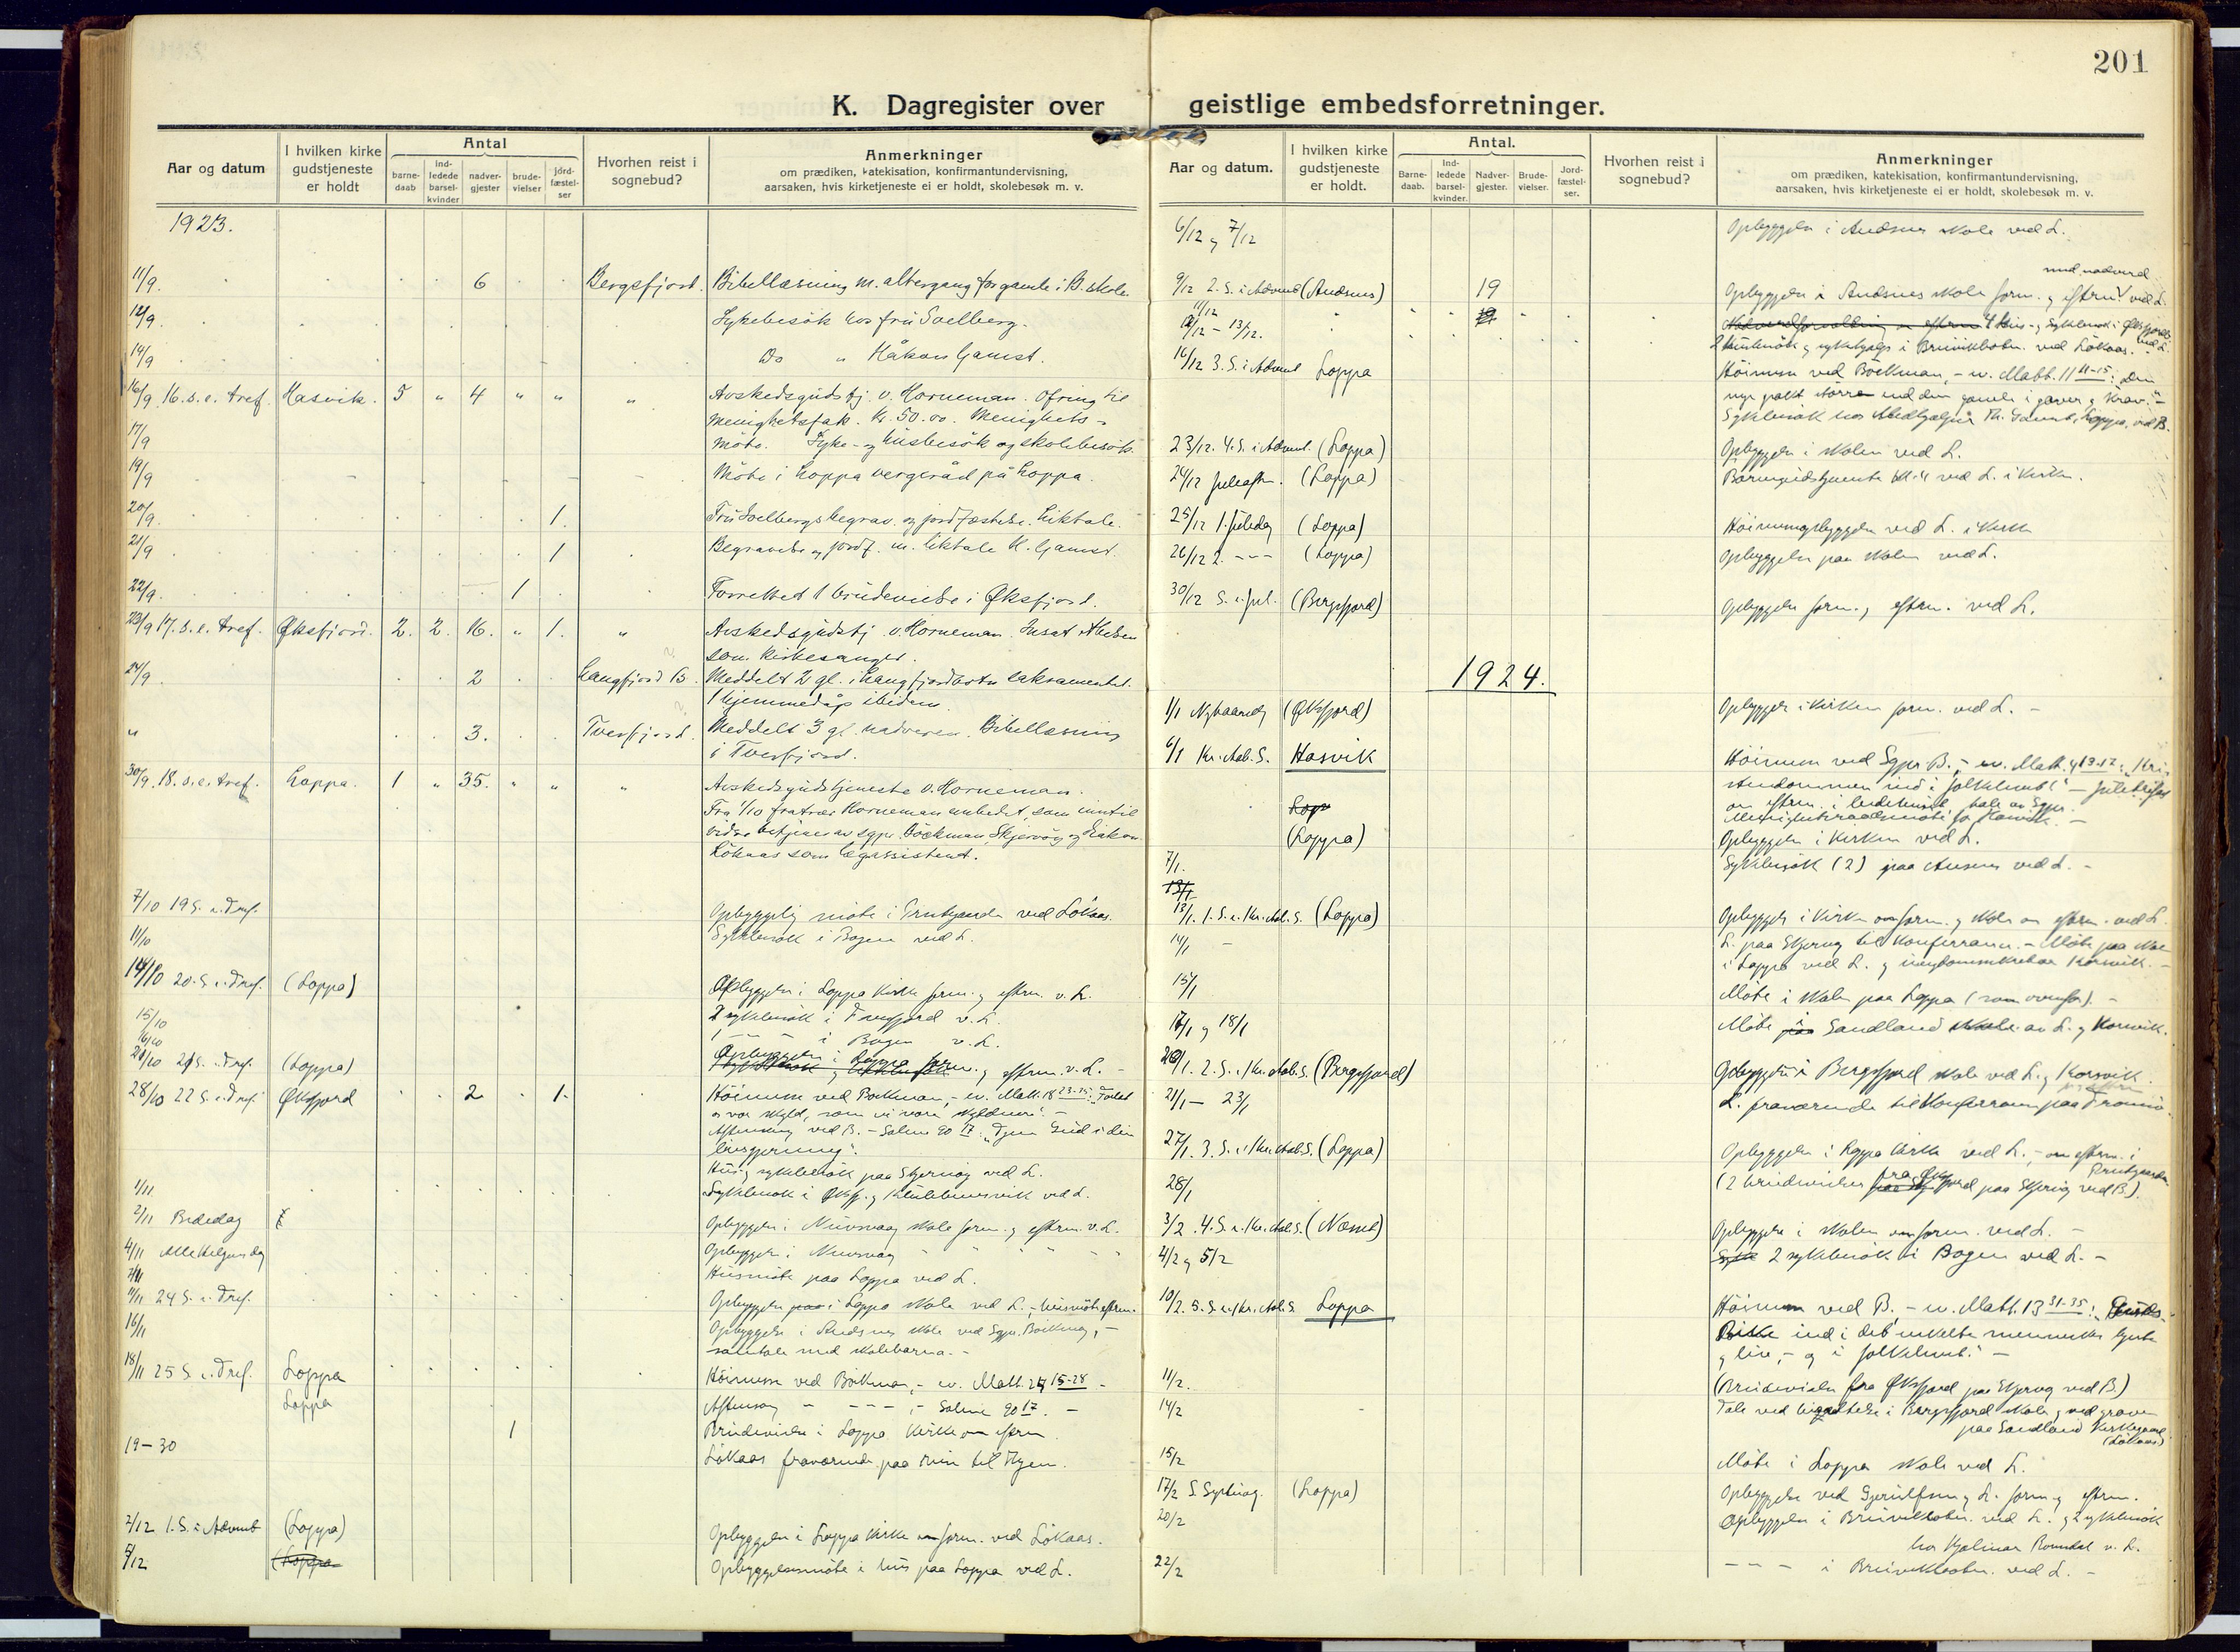 201
K. Dagregister over geistlige embedsforretninger.
Aar og datum
I hvilken kirke gudstjeneste er holdt
Antal
barne-daab
ind-ledede barsel-kvinder
nadver-gjester
brude-vielser
jord-fæstel-ser
Hvorhen reist i sognebud?
Anmerkninger
om prædiken, katekisation, konfirmantundervisning,
aarsaken, hvis kirketjeneste ei er holdt, skolebesøk m. v.
1923.
11/9. 6 Bergsfjord. Bibellæsning m. altergang for gamle i B. skole.
12/9. Sykebesök hos fru Soelberg.
14/9 Do " Håkon Gamst.
16/9 16. s. e. tref. Hasvik. 5 " 4 " " " Avskedsgudstj. v. Horneman. Ofring til
menighetsfak. Kr. 50.00. Menighets-
17/9 möte. Syke- og husbesök og skolebesök.
19/9 Möte i Loppa vergeråd på Loppa.
20/9. 1. Fru Soelbergs begrav. og jordfæstelse. Liktale.
21/9 1 Begravelse og jordf. m. liktale H. Gamst.
22/9. 1 Forrettet 1 brudevielse i Øksfjord.
23/9 17. s. e. tref. Øksfjord. 2. 2. 16. " 1. " Avskedsgudstj. v. Horneman. Insat
som kirkesanger.
24/9. 2 Langfjord B. Meddelt 2 gl. i Langfjordbotn sakramentet.
1 hjemmedåp ibidem.
" 3. Tverfjord. Meddelt 3 gl. nadveren. Bibellæsning
i Tverfjord.
30/9. 18. s. e. tref. Loppa. 1 " 35. " " " Avskedsgudstjeneste v. Horneman.
Fra 1/10 fratræer Horneman embedet, som inntil
videre betjenes av sgpr. Böckman, Skjervöy og
Lökaas som lægassistent.
7/10 19 S. e. Tref. Opbyggelig möte i ved Lökaas.
11/10 Sykebesök i Bogen ved L.
14/10 20. S. e. Tref. (Loppa) Opbyggelse i Loppa kirke form. og eftm. v. L.
15/10 2 sykebesök i v. L.
16/10 1 - - - i Bogen v. L.
21/10 21 S. e. Tref. (Loppa) Opbyggelse i Loppa form. og eftrm. v. L. -
28/10 22 S. e. Tref. Øksfjord 2 1. Höimesse ved Bockman, - ev. Matt. 18 23-35: "Forlat
os vor skyld, som vi vore skyldnere". -
Aftensang ved B. - Salme 90 17: "Tjen Gud i din
livsgjerning".
Hus og sykebesök paa Skjervöy ved L.
1/11 Sykebesök i Øksfj. og ved L.
2/11 Bededag Opbyggelse i Nuvsvaag skole form. og eftrm. v. L.
4/11 Allehelgensdag Opbyggelse i Nuvsvaag " " " "
7/11 Husmöte paa Loppa ved L.
11/11 24 S. e. Tref. Opbyggelse i Loppa skole ved L. - husmöte eftrm.
16/11 Opbyggelse i Andsnes skole ved Sgpr. Böckman, -
samtale med skolebarna. -
18/11 25 S. e. Tref. Loppa Höimesse ved Böckman, - ev. Matt. 24 15-28 -
Loppa Aftensang - - - -, - Salme 90 17. -
1 Brudevielse i Loppa kirke om eftrm.
19 - 30 Lökaas fraværende paa reise til
2/12 1. S. i Advent (Loppa) Opbyggelse i Loppa kirke om form. ved Lökaas.
5/12 (Loppa Opbyggelsesmöte i hus paa Loppa ved L.
Aar og datum.
I hvilken kirke gudstjeneste er holdt.
Antal.
Barne-daab.
Ind-ledede barsel-kvinder.
Nadver-gjester.
Brude-vielser.
Jord-fæstel-ser.
Hvorhen reist i sognebud?
Anmerkninger
om prædiken, katekisation, konfirmantundervisning,
aarsaken, hvis kirketjeneste ei er holdt, skolebesøk m. v.
6/12 og 7/12 Opbyggelse i Andsnes skole ved L.
med nadverd
9/12 2. S. i Advent (Andsnes) 19 Opbyggelse i Andsnes skole form. og eftrm. ved L.
11/12 4 Hus- og sykebesök i Øksfjord ved L.
12/12 - 13/12. 2 husbesök og i ved Lökaas.
16/12 3. S. i Advent Loppa Höimesse ved Böckman, - ev. Matt. 11 11-15: "Den
nye pakt större end den gamle i gaver og krav." -
Sykebesök hos Th. Gamst, Loppa, ved B.
23/12. 4. S. i Advent. (Loppa) Opbyggelse i skolen ved L.
24/12 Juleaften. (Loppa) Barnegudstjeneste kl. 4 ved L. i kirken.
25/12 1. juledag (Loppa) ved L. i kirken
26/12 2. - - - (Loppa) Opbyggelse paa skolen ved L.
30/12 S. e. jul. (Bergsfjord) Opbyggelse form. og eftrm. ved L.
1924.
1/1 Nytaarsdag (Øksfjord) Opbyggelse i kirken form. ved L. -
6/1 Kr. Aab. S. Hasvik Höimesse ved Sgpr. B., - ev. Matt. 4 12-17: "Kri-
stendommen ind i folkelivet" -
om eftrm. i bedehuset, tale av Sgpr.
Menighetsraadsmöte for Hasvik. -
(Loppa) Opbyggelse i kirken ved L.
7/1. Sykebesök (2) paa Ansnes ved L. -
13/1
13/1. 1. S. e. Kr. Aab. S. (Loppa) Opbyggelse i kirken om form. og skolen om eftrm. ved L.
14/1 - L. paa Skjervöy til konferranse. - Möte paa skole
i Loppa ved L. og Korsvik. -
15/1 Möte i skolen paa Loppa (som ovenfor). -
17/1 og 18/1 Möte i Sandland skole av L. og Korsvik.
20/1. 2. S. e. Kr. Aab. S. (Bergsfjord) Opbyggelse i Bergsfjord skole ved L. og Korsvik.
21/1 - 23/1 L. fraværende til konferranse paa Tromsö.
27/1. 3. S. e. Kr. Aab. S. (Loppa) Opbyggelse i Loppa kirke ved L., - om eftrm. i
28/1 (2 brudevielser fra Øksfjord paa Skjervöy ved B.).
3/2 4. S. e. Kr. Aab. S. (Næmt) Opbyggelse i skolen om form. ved L. -
4/2 og 5/2 2 sykebesök i Bogen ved L. -
10/2. 5. S. e. Kr. Aab. S. Loppa Höimesse ved B. - ev. Matt. 13 31-35: "Guds
Rike ind i det enkelte menneskes hjerte
og liv, - og i folkelivet." -
11/2. (Brudevielse fra Øksfjord paa Skjervöy ved B.)
14/2 Tale ved i Bergsfjord skole og ved graven
paa Sandland Kirkegaard
(Lökaas)
15/2 Möte i Loppa skole ved L.
17/2 S. Septuag. (Loppa) Opbyggelse ved og L. form. og eftrm.
20/2 Opbyggelse i ved L. og 2 sykebesök
hos Hjalmar v. L.
22/2 - - - i ved L. -